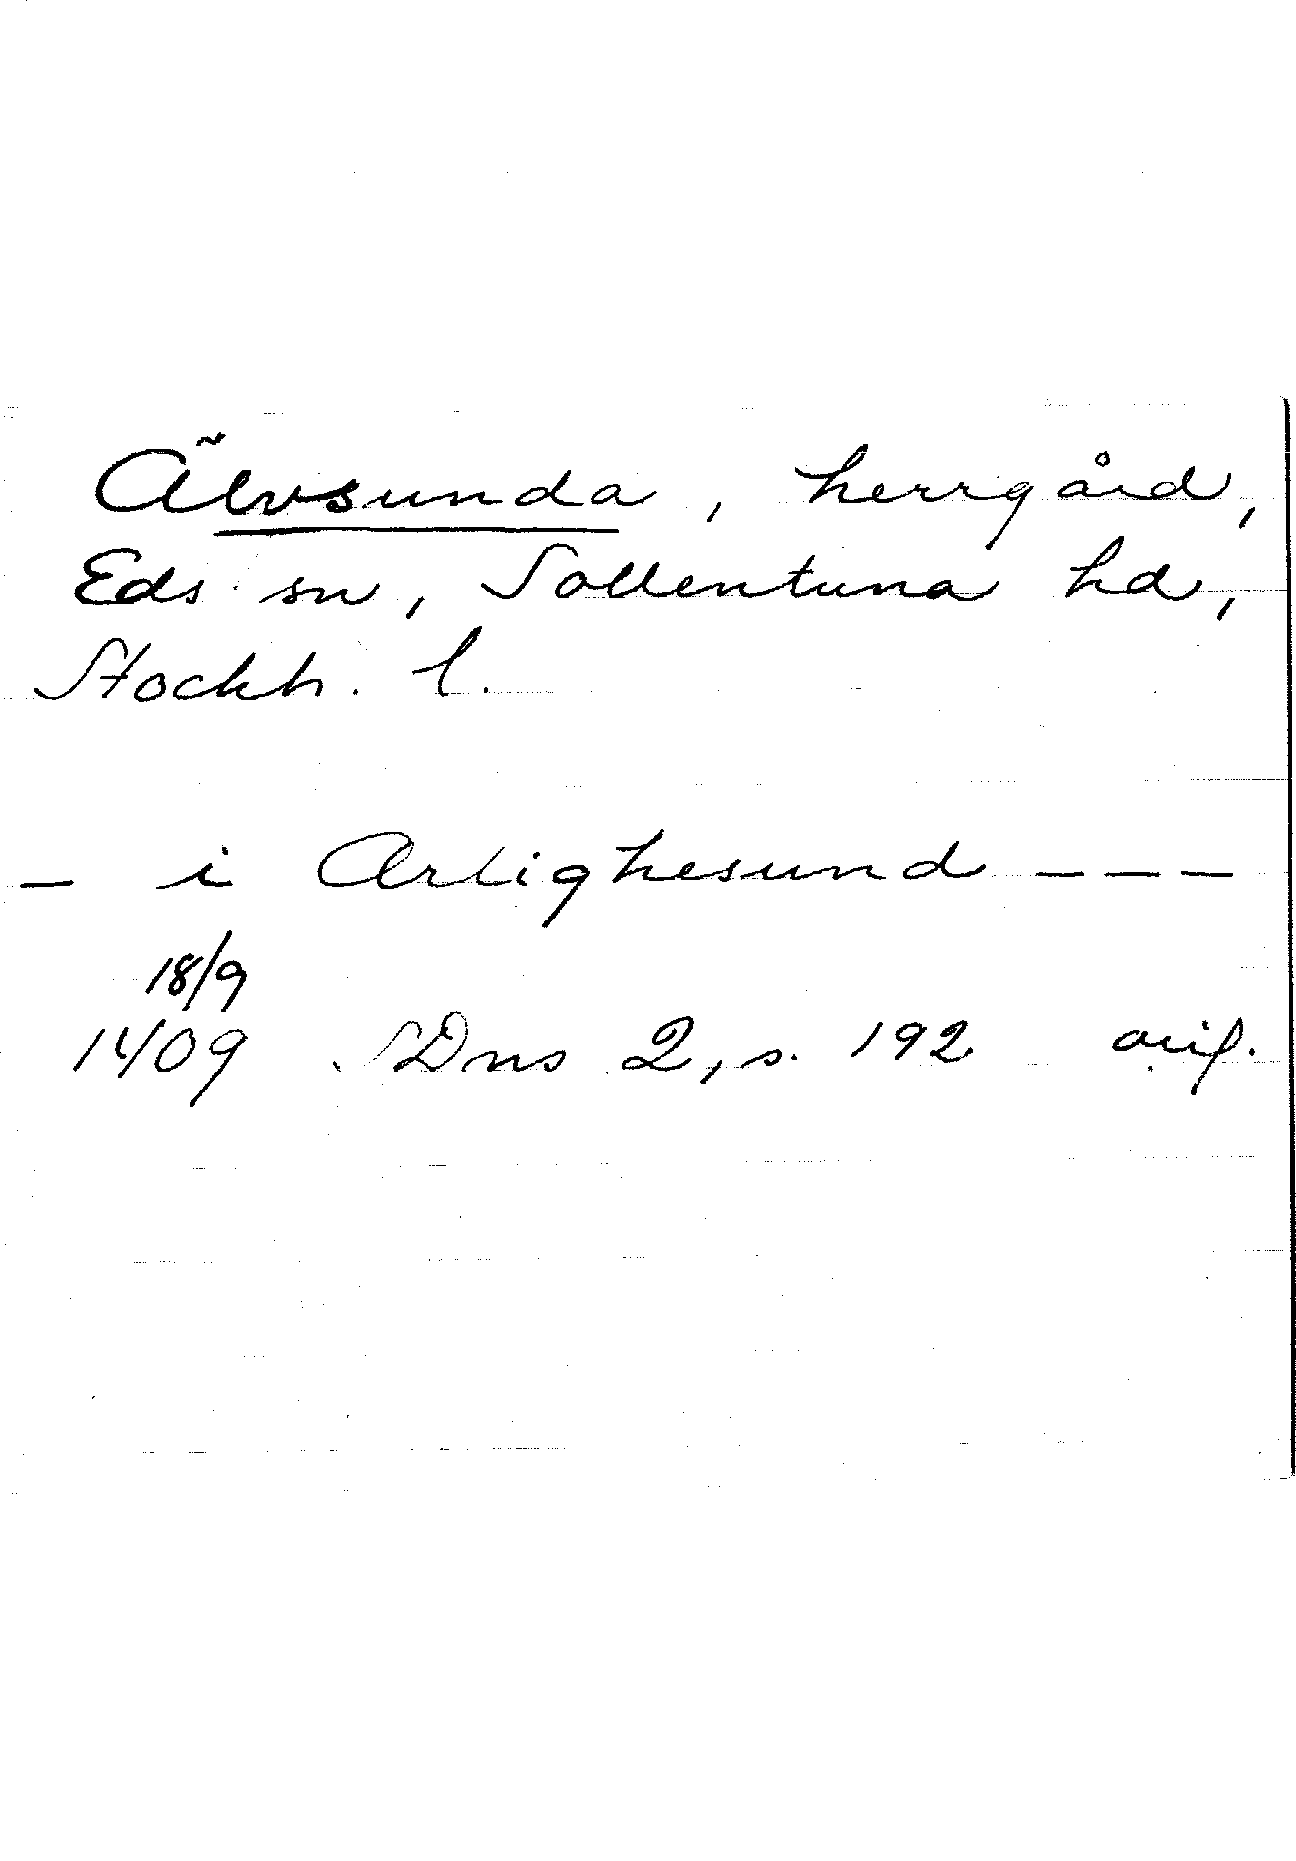 Älvsunda, herrgård,
Eds sn, Sollentuna hd,
Stockh. l.
- i Ærlighesund ---
18/9
1409 SDns 2, s. 192 orig.